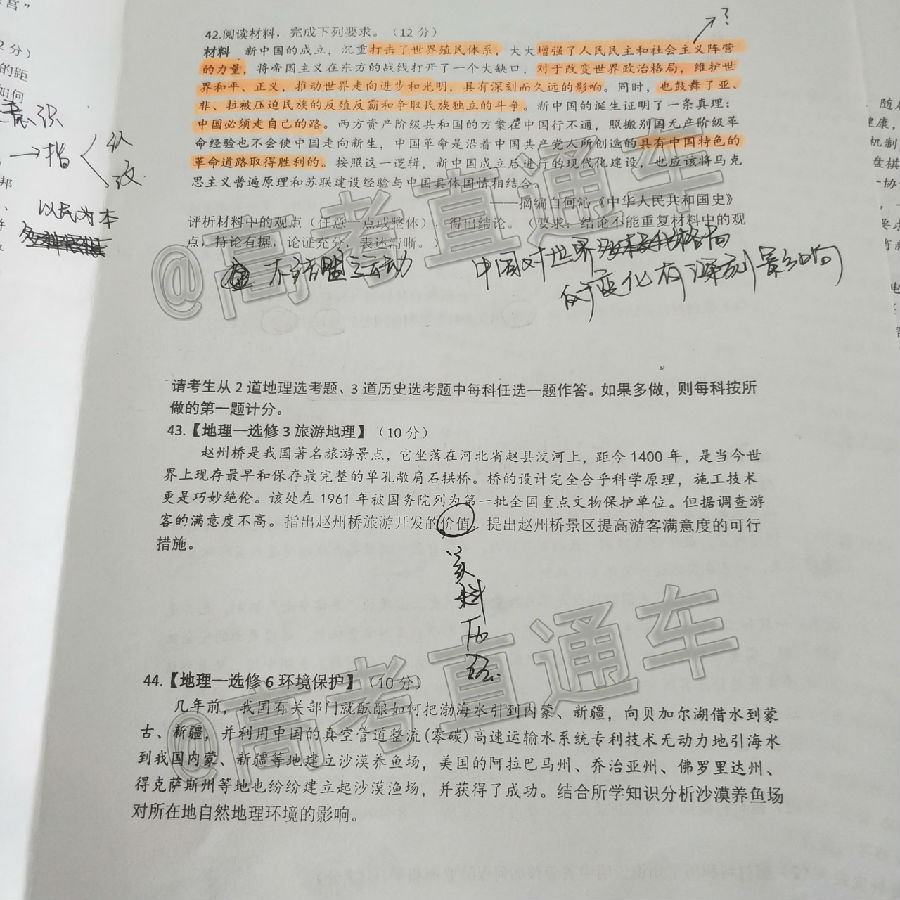 42.阅读材料，完成下列要求。（12分）
材料 新中国的成立，沉重打击了世界殖民体系，大大增强了人民民主和社会主义阵营
的力量，将帝国主义在东方的战线打开了一个大缺口，对于改变世界政治格局，维护世
界和平、正义，推动世界走向进步和光明，具有深刻而久远的影响。同时，也鼓舞了亚、
非、拉被压迫民族的反殖反霸和争取民族独立的斗争。新中国的诞生证明了一条真理：
中国必须走自己的路。西方资产阶级共和国的方案在中国行不通，照搬别国无产阶级革
命经验也不会使中国走向新生，中国革命是沿着中国共产党人所创造的具有中国特色的
革命道路取得胜利的。按照这一逻辑，新中国成立后进行的现代化建设，也应该将马克
思主义普遍原理和苏联建设经验与中国具体国情相结合。
——摘编自何沁《中华人民共和国史》
评析材料中的观点（任意一点或整体），得出结论。（要求：结论不能重复材料中的观
点，持论有据，论证充分，表达清晰。）
不结盟运动
中国对世界格局
的变化有深刻影响
以民为本
请考生从2道地理选考题、3道历史选考题中每科任选一题作答。如果多做，则每科按所
做的第一题计分。
43.【地理—选修3旅游地理】（10分）
赵州桥是我国著名旅游景点，它坐落在河北省赵县洨河上，距今1400年，是当今世
界上现存最早和保存最完整的单孔敞肩石拱桥。桥的设计完全合乎科学原理，施工技术
更是巧妙绝伦。该处在1961年被国务院列为第一批全国重点文物保护单位。但据调查游
客的满意度不高。指出赵州桥旅游开发的价值，提出赵州桥景区提高游客满意度的可行
措施。
美
科
历
经
44.【地理—选修6环境保护】（10分）
几年前，我国有关部门就酝酿如何把渤海水引到内蒙、新疆，向贝加尔湖借水到蒙
古、新疆，并利用中国的真空管道整流(零碳)高速运输水系统专利技术无动力地引海水
到我国内蒙、新疆等地建立沙漠养鱼场，美国的阿拉巴马州、乔治亚州、佛罗里达州、
得克萨斯州等地也纷纷建立起沙漠渔场，并获得了成功。结合所学知识分析沙漠养鱼场
对所在地自然地理环境的影响。
@高考直通车
@高考直通车